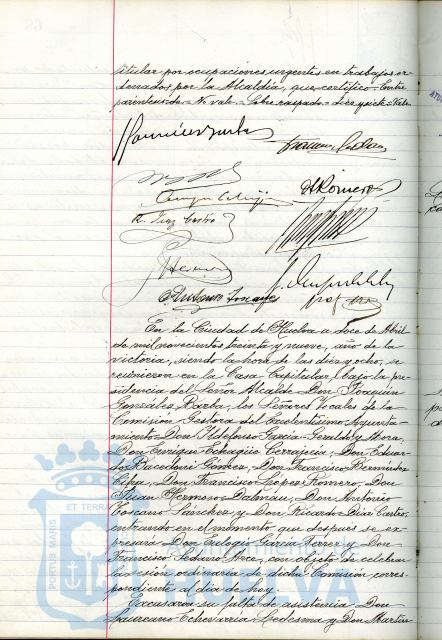 titular por ocupaciones urgentes en trabajos or-
denados por la Alcaldía, que certifico = Entre
paréntesis = No vale = Sobre raspado = diez y siete = Vale
A Romero
R. Díaz Castro
En la Ciudad de Huelva a doce de Abril
de mil novecientos treinta y nueve, año de la
victoria, siendo la hora de las diez y ocho, se
reunieron en la Casa Capitular, bajo la pre-
sidencia del Señor Alcalde Don Joaquín
González Barba, los Señores Vocales de la
Comisión Gestora del Excelentísimo Ayunta-
miento Don Ildefonso García-Geraldo y Mora,
Don Enrique Echagüe Cerrajería, Don Eduar-
do Bacedoni Gómez, Don Francisco Bermúdez
Don Francisco López Romero, Don
Juan Hermoso Dalmau, Don Antonio
Toscano Sánchez y Don Ricardo Díaz Castro,
entrando en el momento que después se ex-
presará Don Eulogio García Ferrer y Don
Francisco Sedano Arce, con objeto de celebrar
la sesión ordinaria de dicha Comisión corres-
pondiente al día de hoy.
Excusaron su falta de asistencia Don
Laureano Echevarría Ledesma y Don Martín
PORTUS MARIS
ET TERRAE